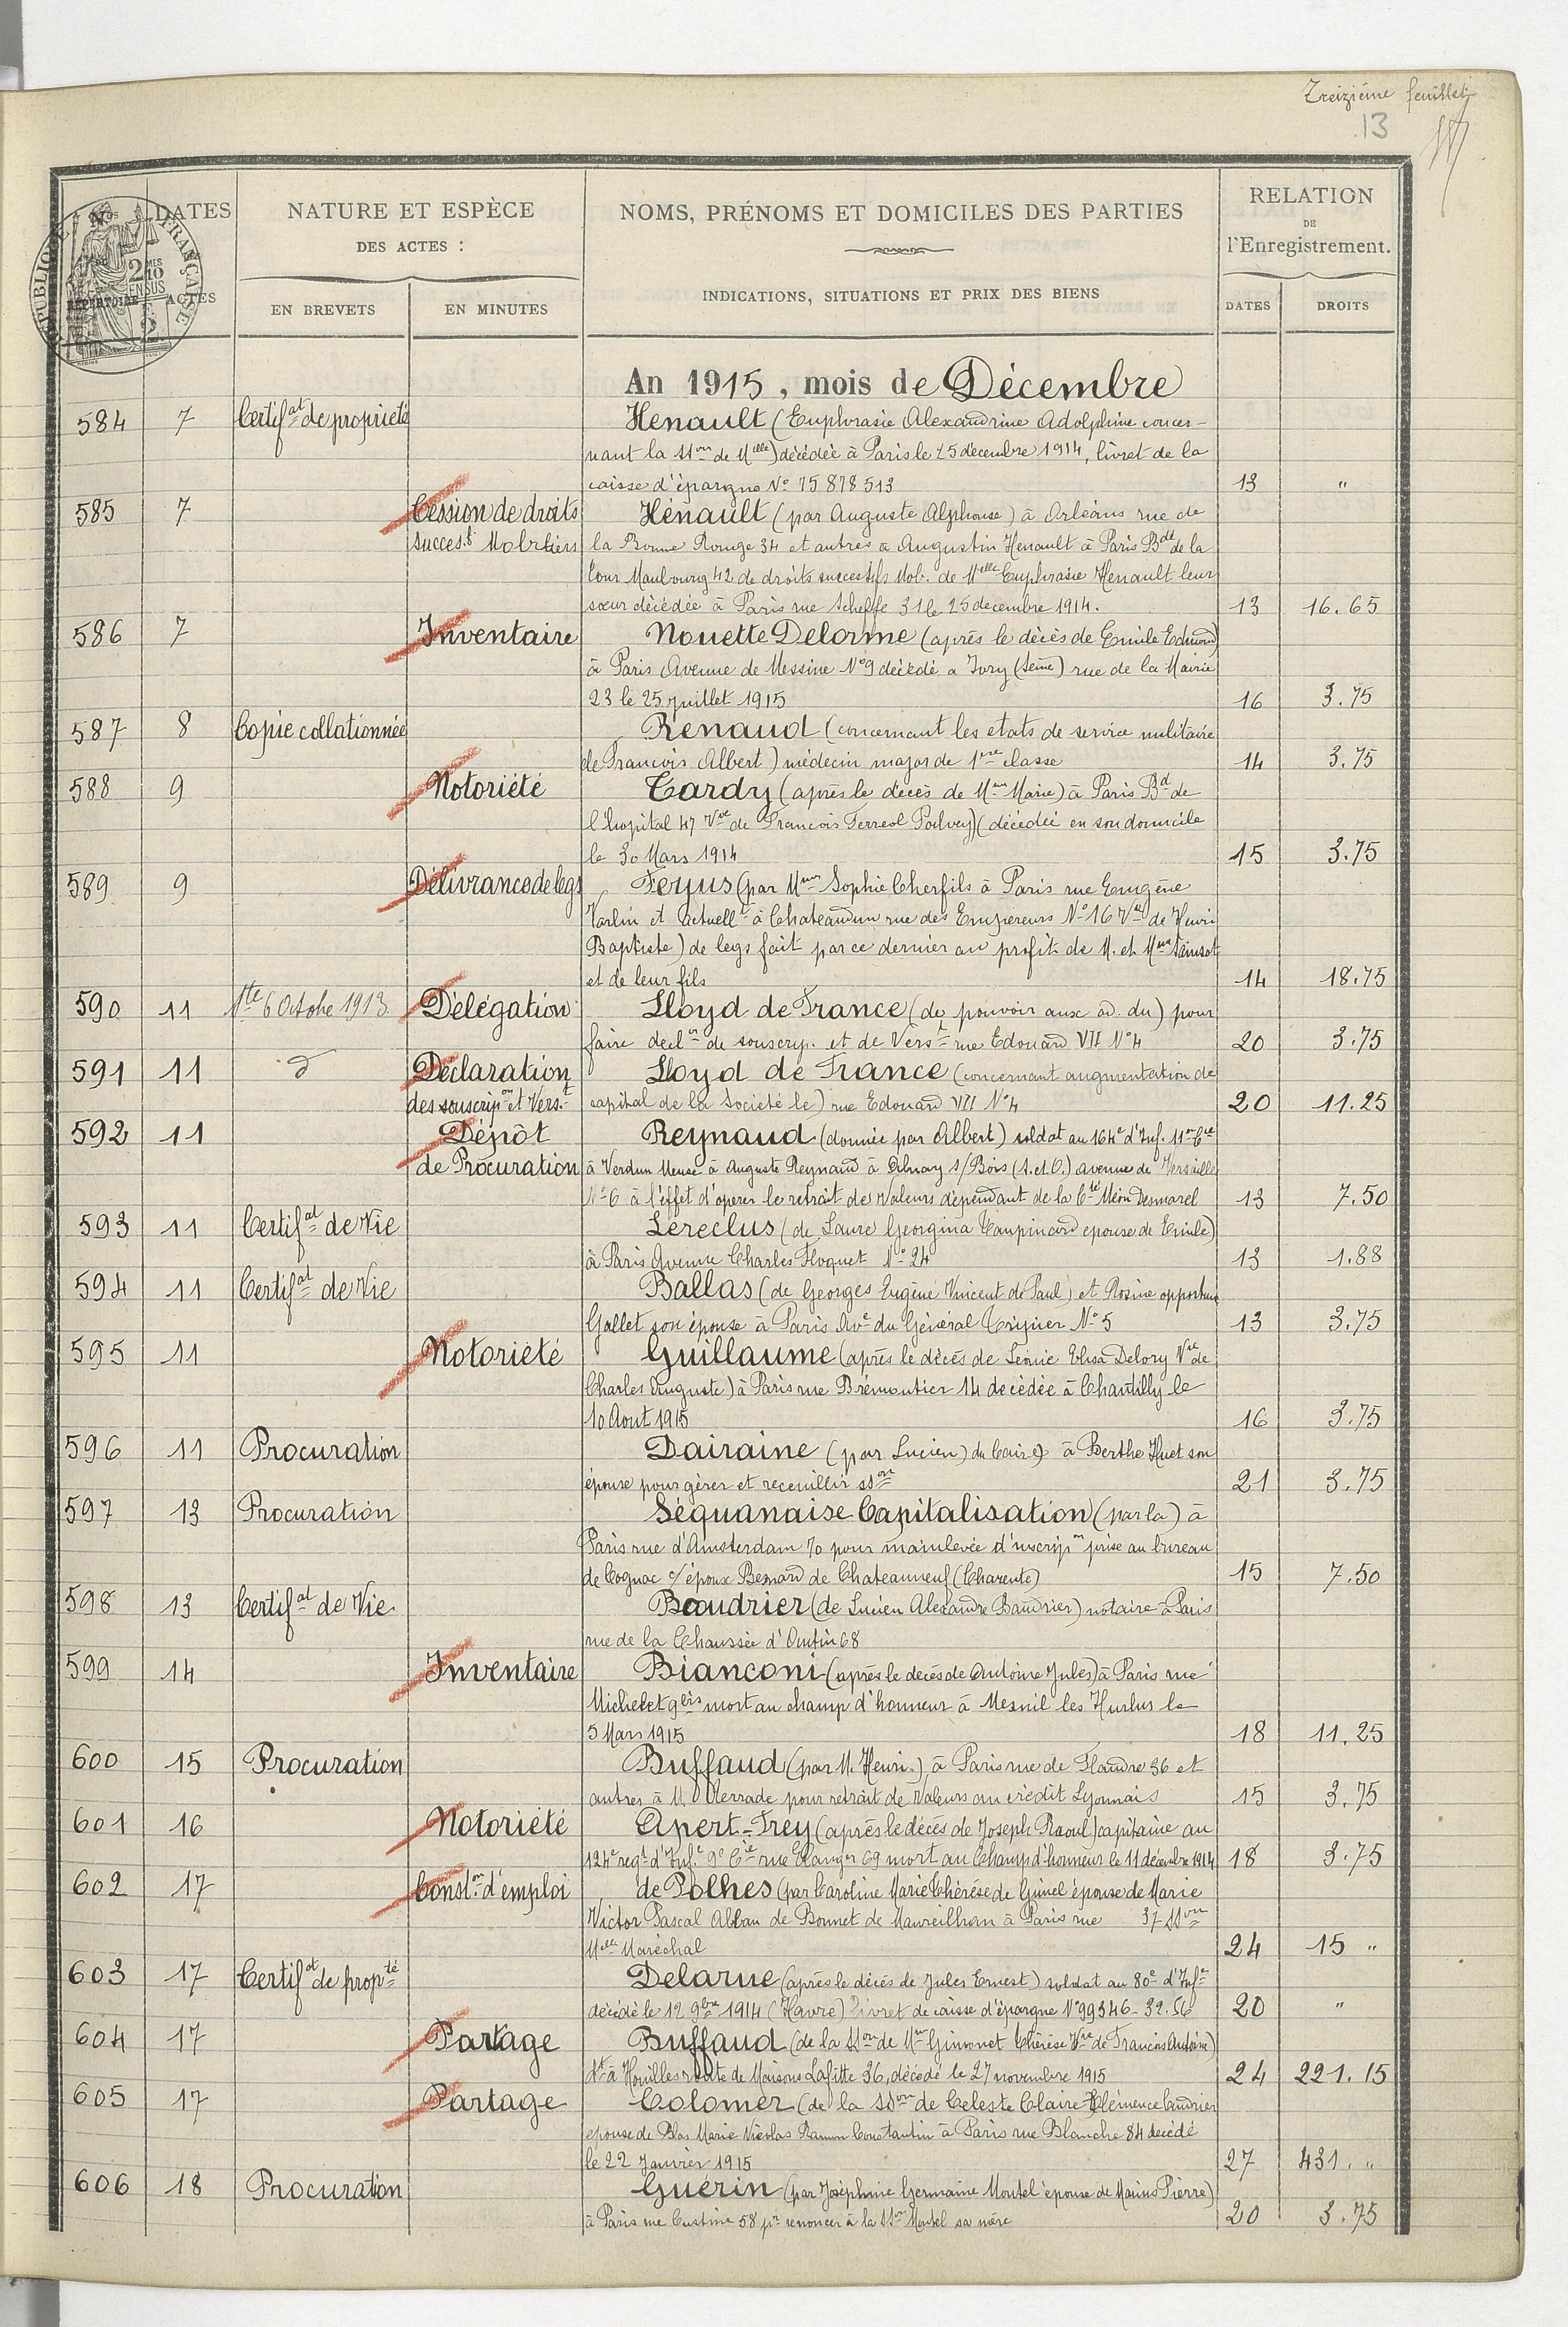 Treizième feuillet
13
DATES
ACTES
RÉPERTOIRE
NATURE ET ESPÈCE
DES ACTES :
EN BREVETS
EN MINUTES
NOMS, PRÉNOMS ET DOMICILES DES PARTIES
INDICATIONS, SITUATIONS ET PRIX DES BIENS
RELATION
DE
l'Enregistrement.
DATES
DROITS
An 1915, mois de Décembre
584 7 Certif.at de propriété Henault (Euphrasie Alexandrine Adolphine concer-
nant la ssion de Melle) décédée à Paris le 25 décembre 1914, livret de la
caisse d'épargne No 75 878 513 13 "
585 7 Cession de droits Hénault (par Auguste Alphonse) à Orléans rue de
success.fs Mobiliers la Bonne Rouge 34 et autres à Augustin Henault à Paris Bd de la
tour Maubourg 42 de droits successifs Mob. de Melle Euphrasie Henault leur
sœur décédée à Paris rue Scheffe 31 le 25 decembre 1914. 13 16.65
586 7 Inventaire Nouette Delorme (après le décès de Emile Edmond)
à Paris Avenue de Messine No 9 décédé a Ivry (Seine) rue de la Mairie
23 le 25 juillet 1915 16 3.75
587 8 Copie collationnée Renaud (concernant les etats de service militaire
de Francois Albert) médecin major de 1ere classe 14 3.75
588 9 Notoriété Tardy (après le décès de Mme Marie) à Paris Bd de
l'hopital 47 Vve de Francois Ferreol (décédée en son domicile
le 30 Mars 1914 15 3.75
589 9 Délivrance de legs Feyus (par Mme Sophie Cherfils à Paris rue Eugène
Varlin et actuellt à Chateaudun rue des Empereurs No 16 Vve de Henri
Baptiste) de legs fait par ce dernier au profit de M. et Mme Sainsot
et de leur fils 14 18.75
590 11 Ste 6 Octobre 1913 Délégation Lloyd de France (de pouvoir aux ad. du) pour
faire declon de souscrip. et de Verst rue Edouard VII No 4 20 3.75
591 11 d° Déclaration Lloyd de France (concernant augmentation de
des souscripon et Vers.t capital de la Societé le) rue Edouard VII No 4 20 11.25
592 11 Dépôt Reynaud (donnée par Albert) soldat au 164e d'Inf. 11me Cie
de Procuration à Verdun Meuse à Auguste Reynaud à Aulnay s/Bois (S.et.O.) avenue de Versaille
No 6 à l'effet d'operer le retrait de Valeurs dépendant de la Cté Méon Desmarel 13 7.50
593 11 Certif.at de Vie Lereclus (de Laure Georgina Taupinard epouse de Emile)
à Paris Avenue Charles Floquet No 24 13 1.88
594 11 Certif.at de Vie Ballas (de Georges Eugène Vincent de Paul) et Rosine opportune
Gallet son épouse à Paris Ave du Général Tripier No 5 13 3.75
595 11 Notoriété Guillaume (après le décès de Léonie Elisa Delory Vve de
Charles Auguste) à Paris rue Brémontier 14 decédée à Chantilly le
10 Aout 1915 16 3.75
596 11 Procuration Dairaine (par Lucien) du Caire à Berthe Huet son
épouse pour gérer et receuillir ssion 21 3.75
597 13 Procuration Séquanaise Capitalisation (par la) à
Paris rue d'Amsterdam 70 pour mainlevée d'inscripon prise au bureau
de Cognac c/ époux Besnard de Chateauneuf (Charente) 15 7.50
598 13 Certif.at de Vie Baudrier (de Lucien Alexandre Baudrier) notaire à Paris
rue de la Chaussée d'Antin 68
599 14 Inventaire Bianconi (après le decés de Antoine Jules) à Paris rue
Michelet 9bis mort au champ d'honneur à Mesnil les Hurlus le
5 Mars 1915 18 11.25
600 15 Procuration Buffaud (par M. Henri) à Paris rue de Flandre 36 et
autres à M. Merrade pour retrait de Valeurs au crédit Lyonnais 15 3.75
601 16 Notoriété Apert-Frey (après le décès de Joseph Raoul) capitaine au
124e regt d'Inf.e 9e Cie rue Erlanger 69 mort au Champ d'honneur le 11 décembre 1914 18 3.75
602 17 Const.on d'emploi de Polhes (par Caroline Marie Thérèse de Guinel épouse de Marie
Victor Pascal Alban de Bonnet de Maureilhan à Paris rue 37 ssion
Melle Maréchal 24 15 "
603 17 Certif.at de propté Delarue (après le décès de Jules Ernest) soldat au 80e d'Infe
décédé le 12 9bre 1914 (Havre) livret de caisse d'épargne No 99346-32.56 20 "
604 17 Partage Buffaud (de la ssion de Mme Ginonet Thérèse Vve de Francois Antoine)
dt à Houilles route de Maisons Lafitte 36, décédé le 27 novembre 1915 24 221.15
605 17 Partage Colomer (de la ssion de Celeste Claire Clémence Caudrier
epouse de Blas Marie Nicolas Ramon Constantin à Paris rue Blanche 84 decédé
le 22 Janvier 1915 27 431. "
606 18 Procuration Guérin (par Joséphine Germaine Montel épouse de Marius Pierre)
à Paris rue Custine 58 pr renoncer à la ssion Montel sa mère 20 3.75